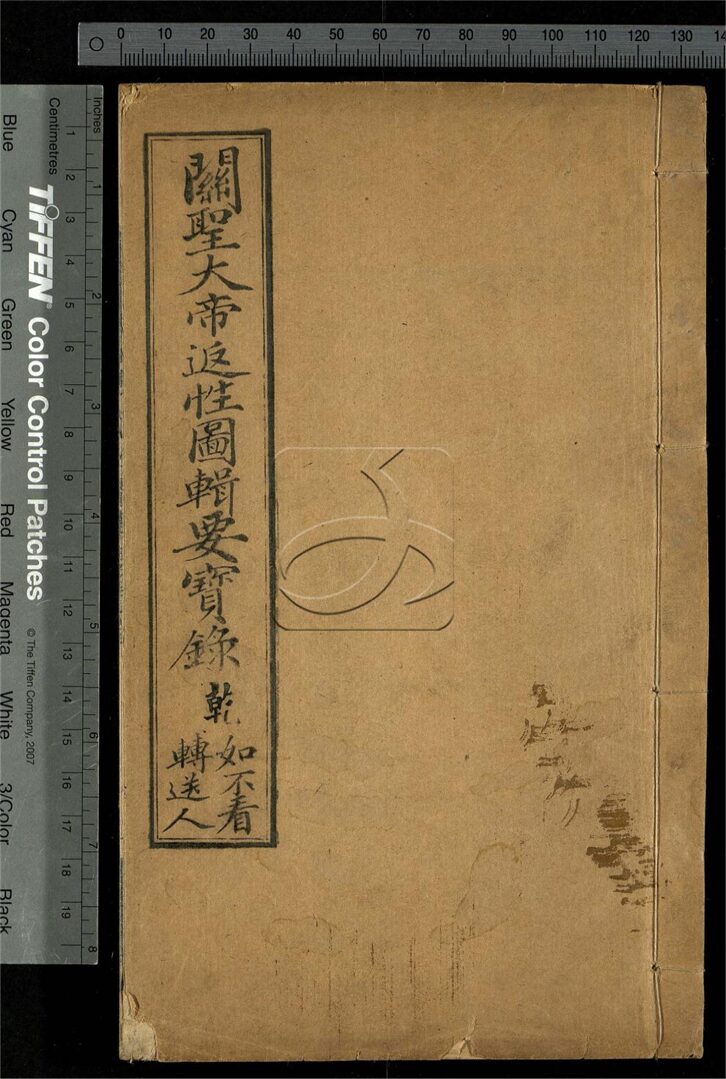 0 10 20 30 40 50 60 70 80 90 100 110 120 130 14
關聖大帝返性圖輯要寶錄 乾
如不看
轉送人
Inches
1 2 3 4 5 6 7 8
Centimetres
1 2 3 4 5 6 7 8 9 10 11 12 13 14 15 16 17 18 19
TIFFEN® Color Control Patches © The Tiffen Company, 2007
Blue Cyan Green Yellow Red Magenta White 3/Color Black